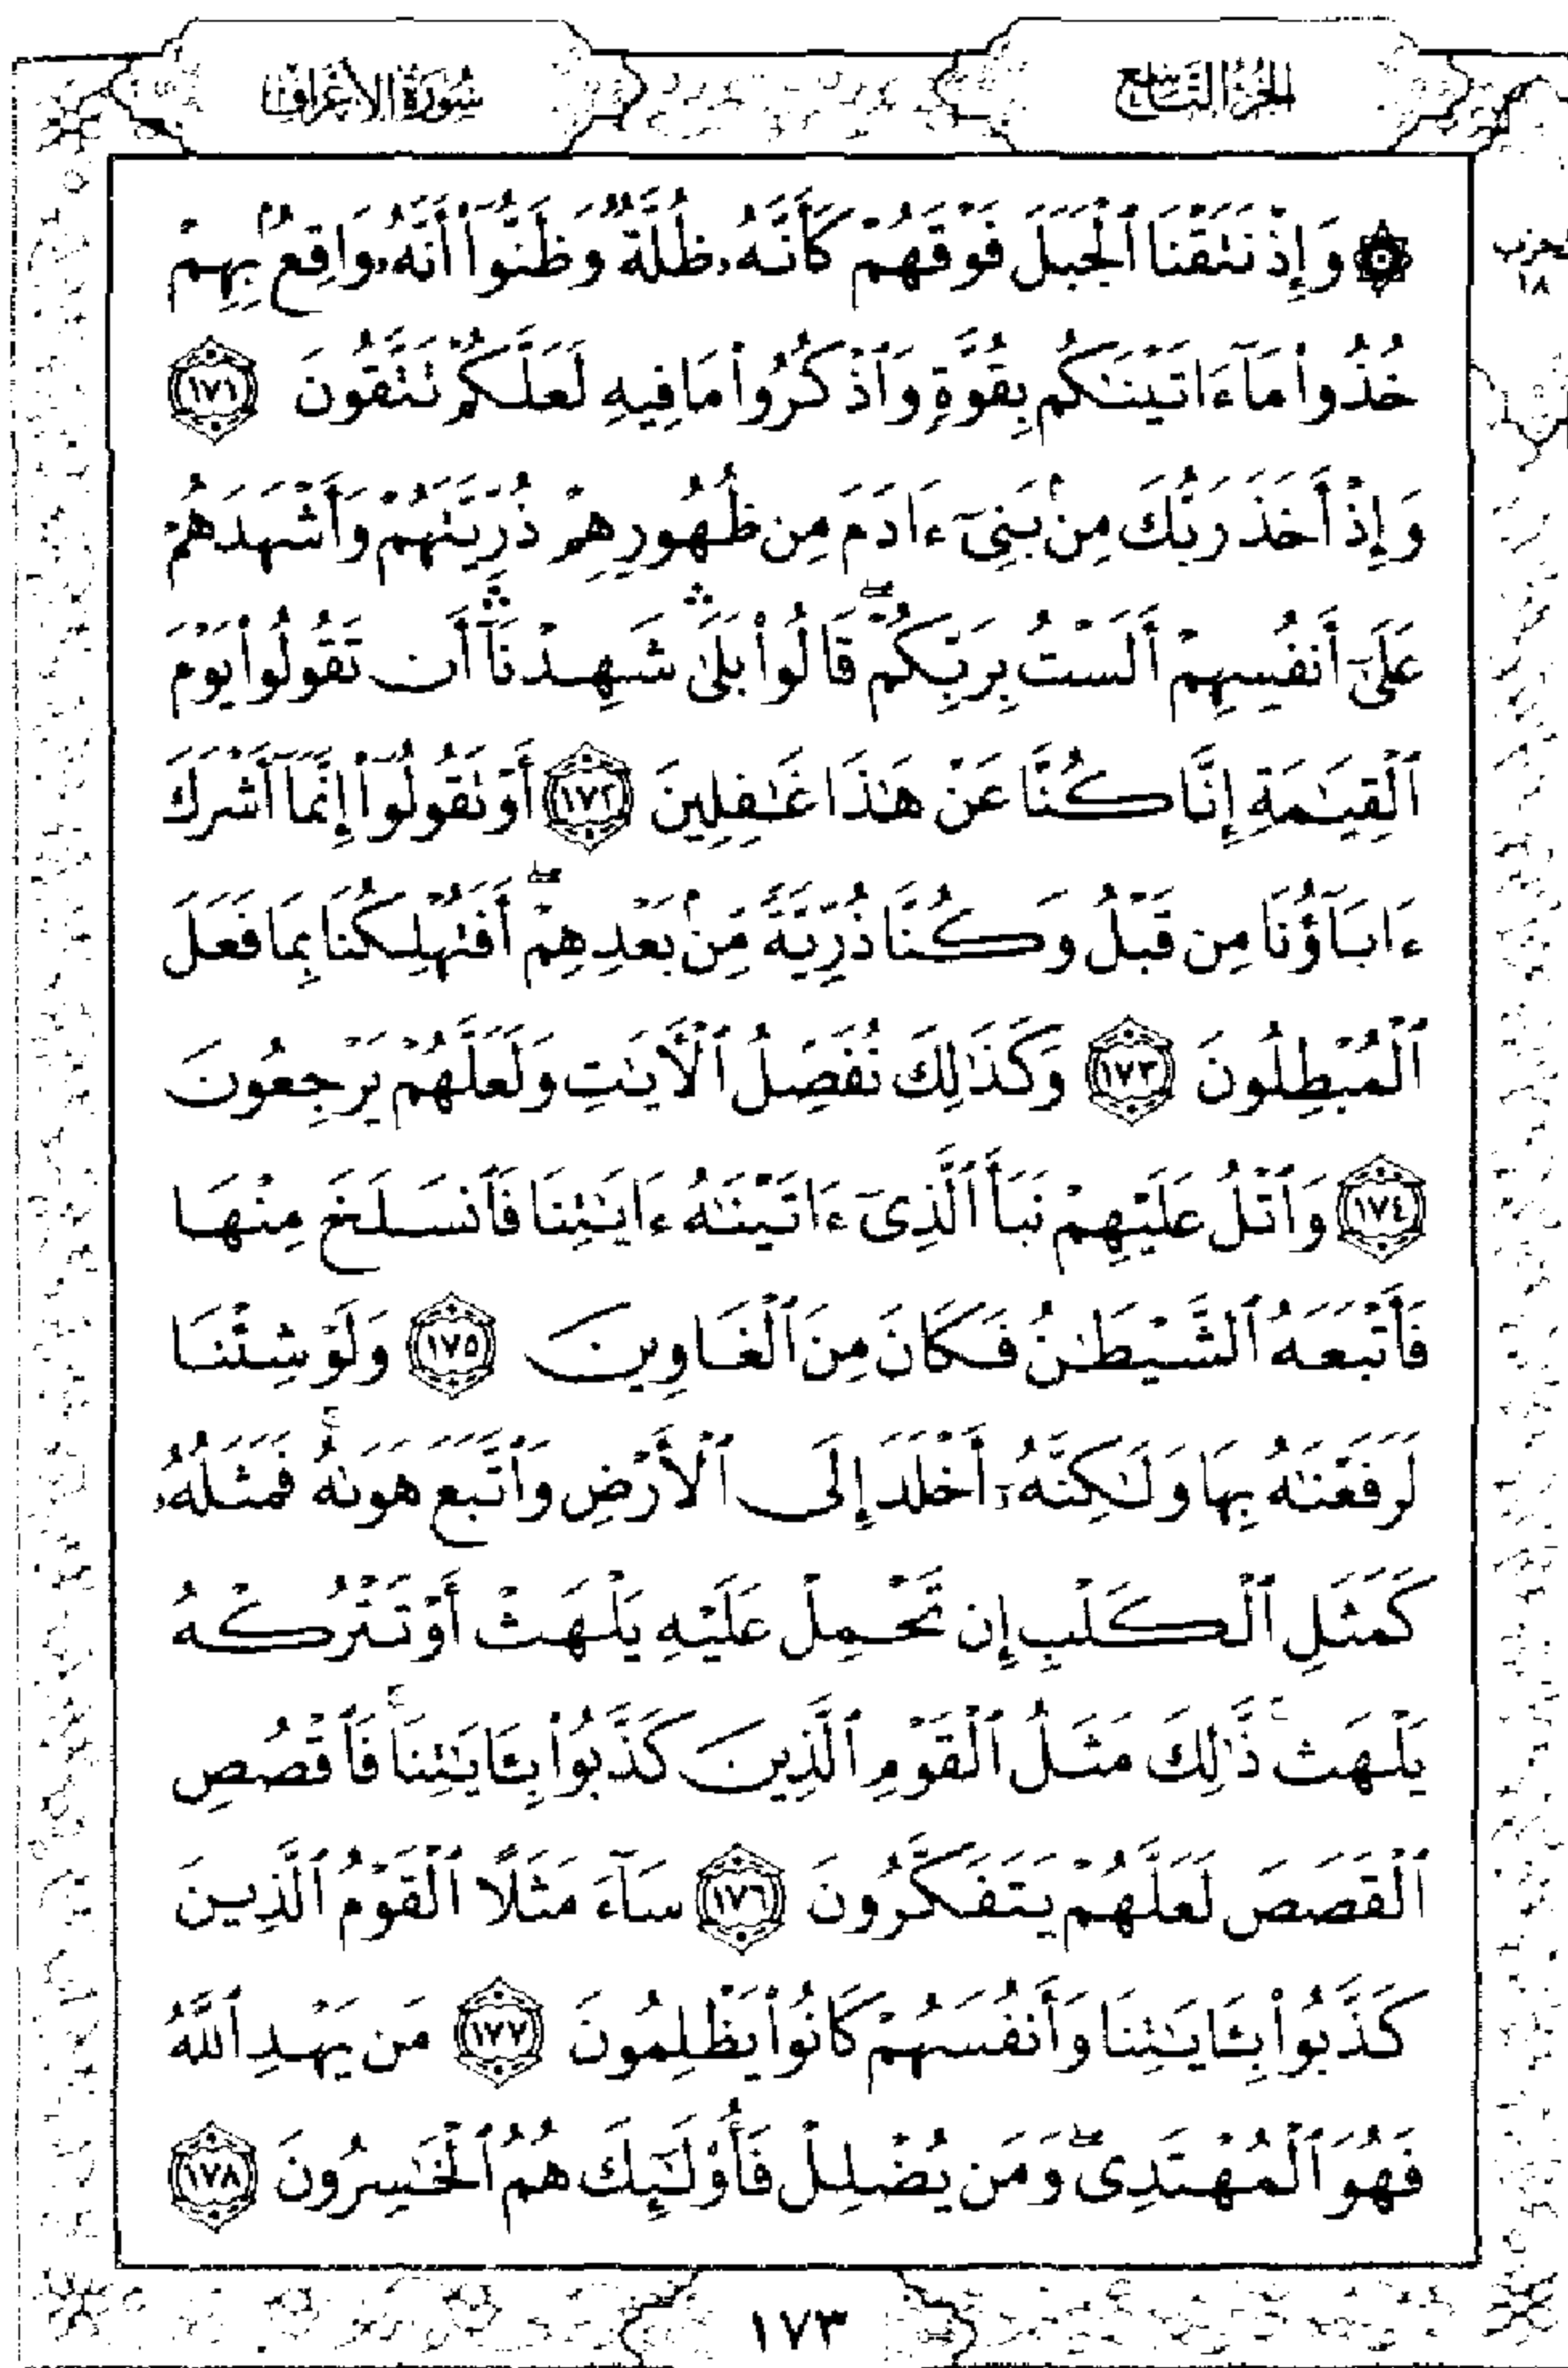 الجزء التاسع
سورة الأعراف
۞ وَإِذْ نَتَقْنَا ٱلْجَبَلَ فَوْقَهُمْ كَأَنَّهُۥ ظُلَّةٌ وَظَنُّوٓا۟ أَنَّهُۥ وَاقِعٌۢ بِهِمْ
حزب
١٨
خُذُوا۟ مَآ ءَاتَيْنَٰكُم بِقُوَّةٍ وَٱذْكُرُوا۟ مَا فِيهِ لَعَلَّكُمْ تَتَّقُونَ ١٧١
وَإِذْ أَخَذَ رَبُّكَ مِنۢ بَنِىٓ ءَادَمَ مِن ظُهُورِهِمْ ذُرِّيَّتَهُمْ وَأَشْهَدَهُمْ
عَلَىٰٓ أَنفُسِهِمْ أَلَسْتُ بِرَبِّكُمْ ۖ قَالُوا۟ بَلَىٰ ۛ شَهِدْنَآ ۛ أَن تَقُولُوا۟ يَوْمَ
ٱلْقِيَٰمَةِ إِنَّا كُنَّا عَنْ هَٰذَا غَٰفِلِينَ ١٧٢ أَوْ تَقُولُوٓا۟ إِنَّمَآ أَشْرَكَ
ءَابَآؤُنَا مِن قَبْلُ وَكُنَّا ذُرِّيَّةً مِّنۢ بَعْدِهِمْ ۖ أَفَتُهْلِكُنَا بِمَا فَعَلَ
ٱلْمُبْطِلُونَ ١٧٣ وَكَذَٰلِكَ نُفَصِّلُ ٱلْأَيَٰتِ وَلَعَلَّهُمْ يَرْجِعُونَ
١٧٤ وَٱتْلُ عَلَيْهِمْ نَبَأَ ٱلَّذِىٓ ءَاتَيْنَٰهُ ءَايَٰتِنَا فَٱنسَلَخَ مِنْهَا
فَأَتْبَعَهُ ٱلشَّيْطَٰنُ فَكَانَ مِنَ ٱلْغَاوِينَ ١٧٥ وَلَوْ شِئْنَا
لَرَفَعْنَٰهُ بِهَا وَلَٰكِنَّهُۥٓ أَخْلَدَ إِلَى ٱلْأَرْضِ وَٱتَّبَعَ هَوَىٰهُ ۚ فَمَثَلُهُۥ
كَمَثَلِ ٱلْكَلْبِ إِن تَحْمِلْ عَلَيْهِ يَلْهَثْ أَوْ تَتْرُكْهُ
يَلْهَث ۚ ذَّٰلِكَ مَثَلُ ٱلْقَوْمِ ٱلَّذِينَ كَذَّبُوا۟ بِـَٔايَٰتِنَا ۚ فَٱقْصُصِ
ٱلْقَصَصَ لَعَلَّهُمْ يَتَفَكَّرُونَ ١٧٦ سَآءَ مَثَلًا ٱلْقَوْمُ ٱلَّذِينَ
كَذَّبُوا۟ بِـَٔايَٰتِنَا وَأَنفُسَهُمْ كَانُوا۟ يَظْلِمُونَ ١٧٧ مَن يَهْدِ ٱللَّهُ
فَهُوَ ٱلْمُهْتَدِى ۖ وَمَن يُضْلِلْ فَأُو۟لَٰٓئِكَ هُمُ ٱلْخَٰسِرُونَ ١٧٨
١٧٣